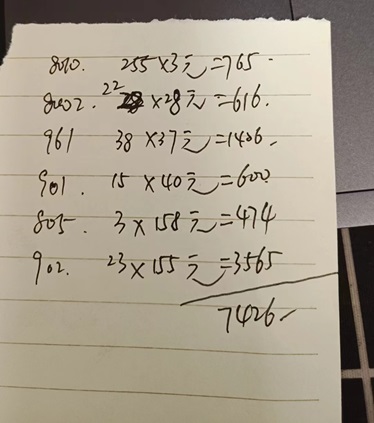 8010. 255×3元=765.
8002. 22×28元=616.
961 38×37元=1406.
901. 15×40元=600
805. 3×158元=474
902. 23×155元=3565
7426